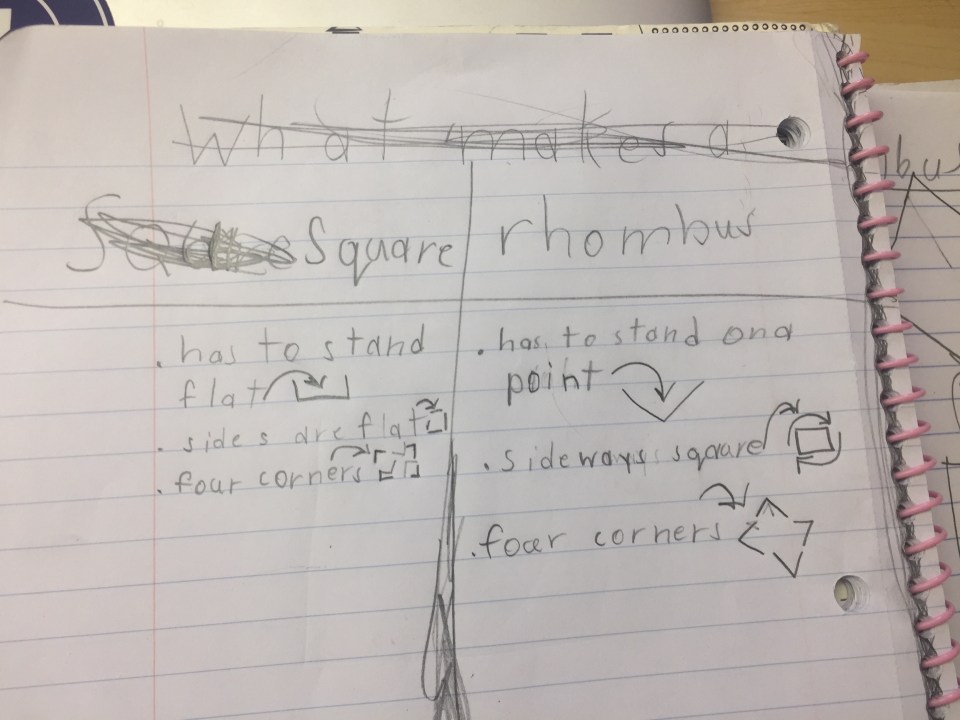 What makes a
Square rhombus
. has to stand
flat
. sides are flat
. four corners
. has to stand on a
point
. sideways square
. four corners
bus